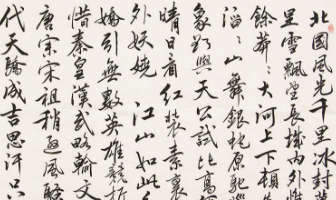 北國風光千里冰封
里雪飄望長城内外惟
餘莽々大河上下頓失
滔々山舞銀蛇原馳蠟
象欲與天公試比高
晴日看紅裝素裹
外妖嬈 江山如此多
嬌引無數英雄競折
惜秦皇漢武略輸文
唐宗宋祖稍遜風騷
代天驕成吉思汗只